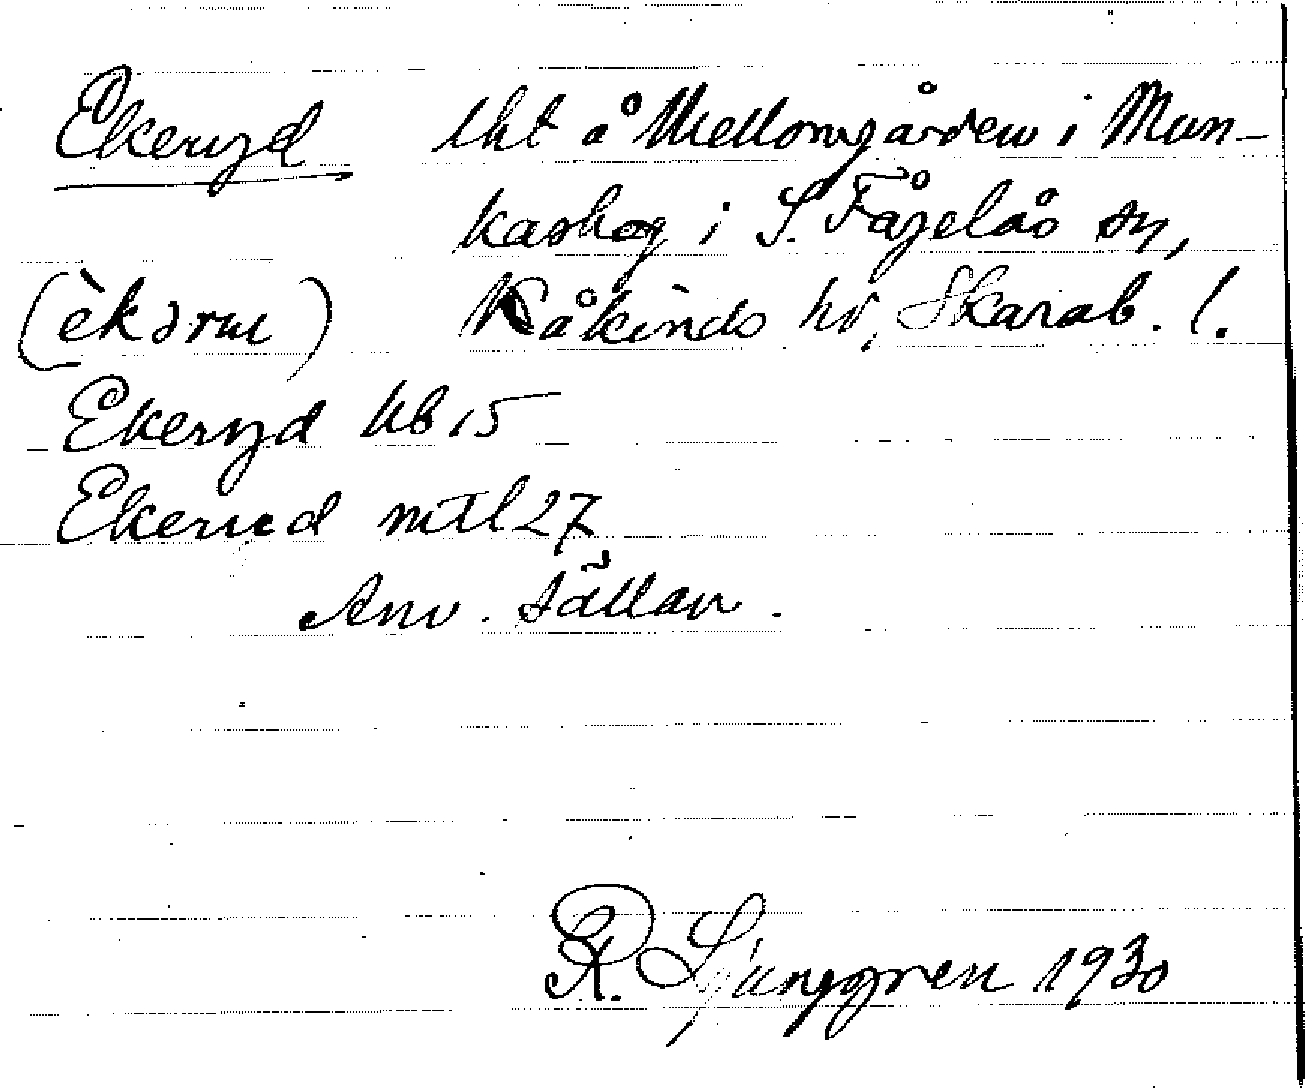 Ekeryd lht å Mellomgården i Mun-
kaskog i S. Fågelås sn,
(èkəru) Kåkinds hd, Skarab. l.
Ekeryd kb 15
Ekerud mtl 27
Anv. sällan.
R. Ljunggren 1930